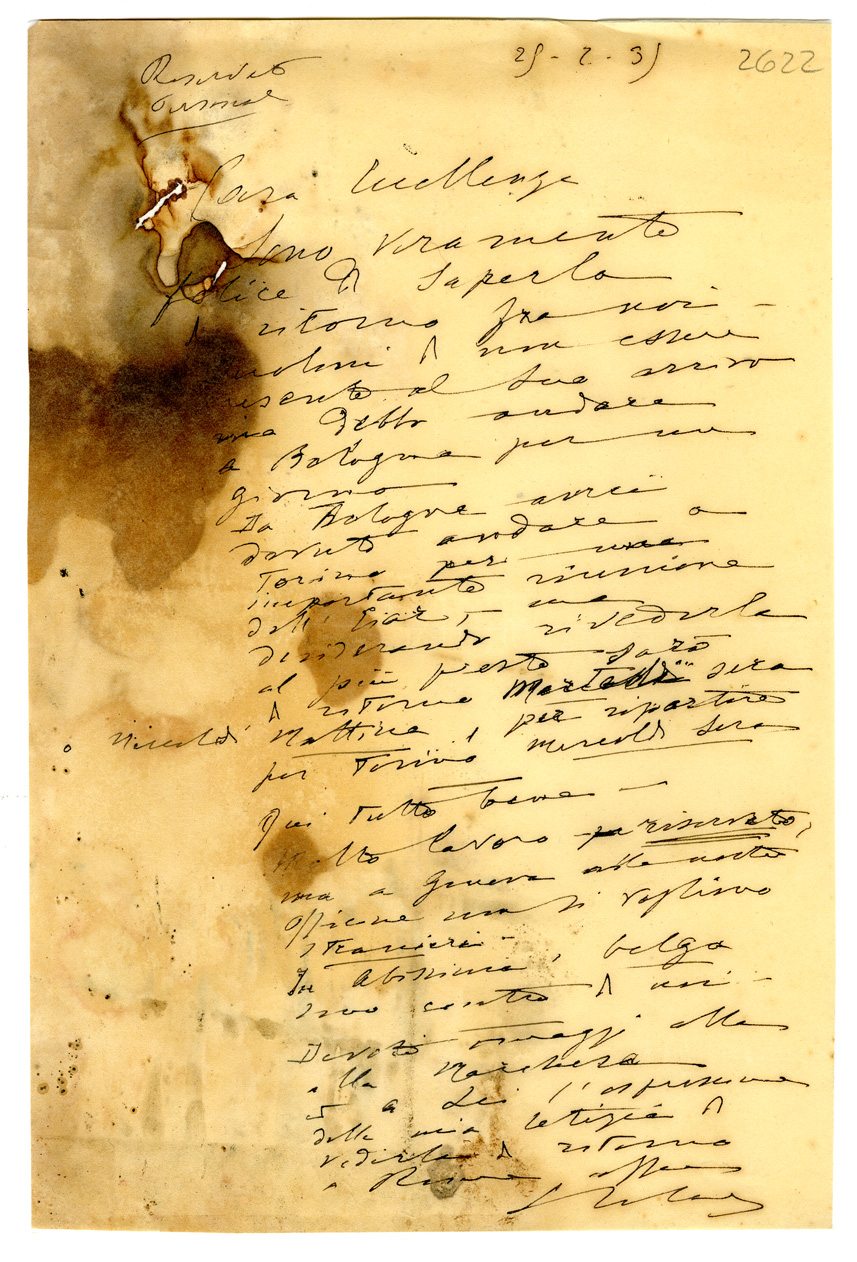 25-2-35
2622
Riservata
Personale
Cara Eccellenza
Sono veramente
felice di saperla
di ritorno fra noi -
di non essere
presente al Suo arrivo
ma debbo andare
a Bologna per un
giorno
Da Bologna avrei
dovuto andare a
Torino per una
importante riunione
dell' Eiar, - ma
desiderando rivederla
al più presto sarò
di ritorno Martedì sera
o Mercoldì Mattina, per ripartire
per Torino mercoldì sera
Qui tutto bene -
Molto lavoro riservato,
ma a Genova alle nostre
officine non si vogliono
stranieri -
In Abissinia, belga
sono contro di noi -
Devoti omaggi alla
alla Marchesa
e a Lei l'espressione
della mia letizia di
vederla di ritorno
a Roma